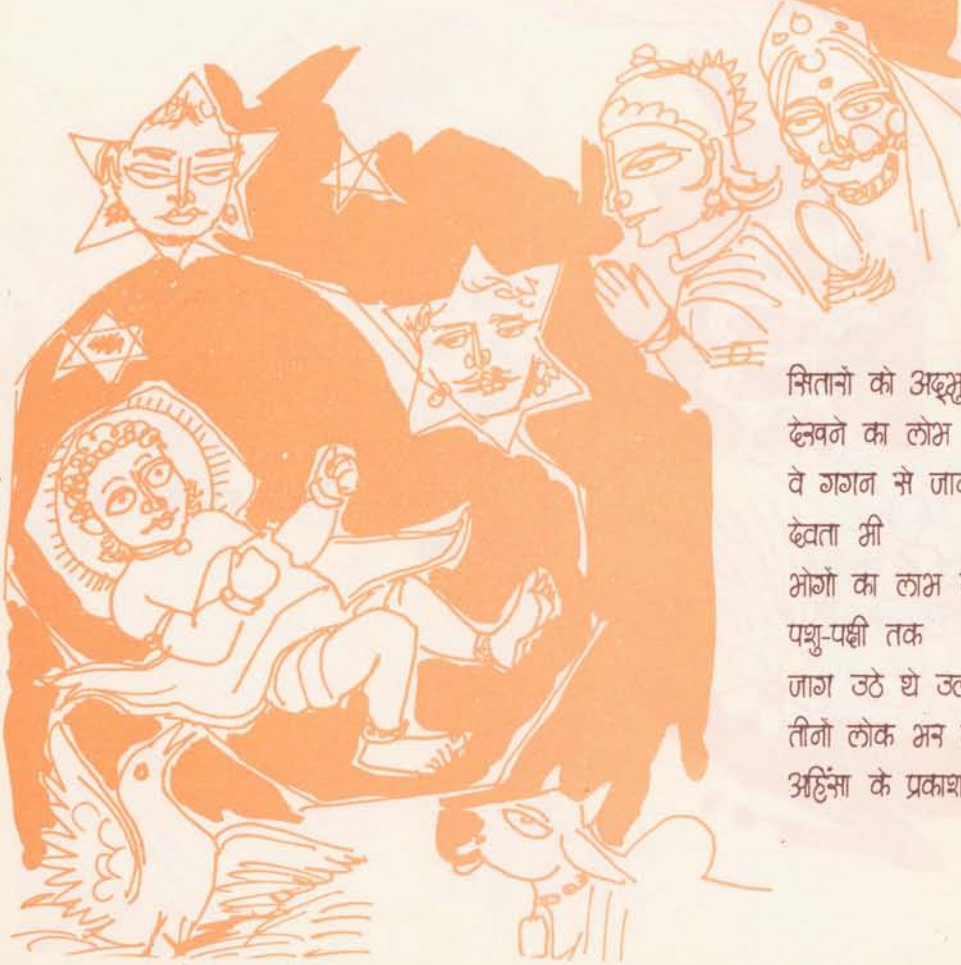 सितारों को अद्भु
देखने का लोभ
वे गगन से जा
देवता भी
भोगों का लाभ
पशु-पक्षी तक
जाग उठे थे उ
तीनों लोक भर
अहिंसा के प्रकाश